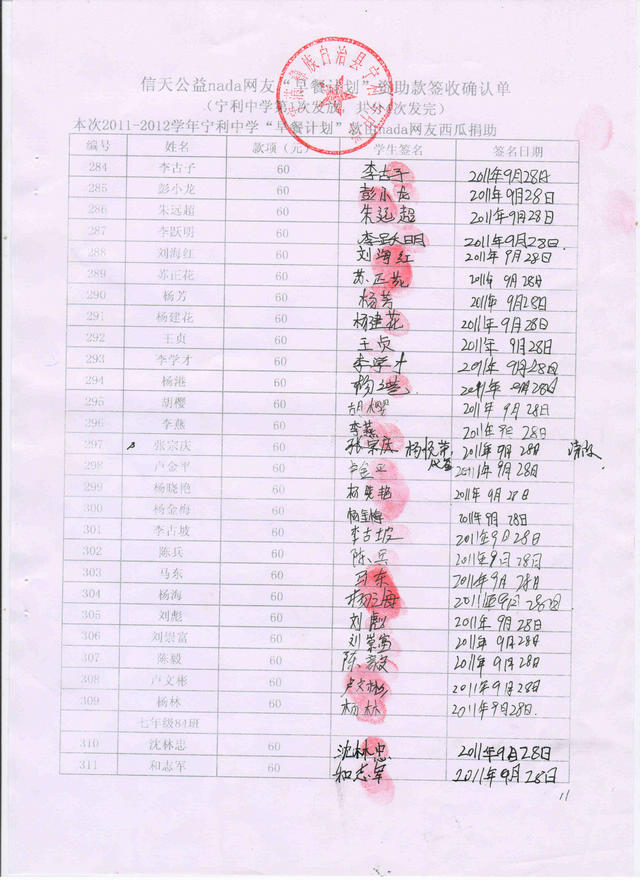 信天公益nada网友“早餐计划”资助款签收确认单
（宁利中学第1次发放 共分4次发完）
本次2011-2012学年宁利中学“早餐计划”款由nada网友西瓜捐助
编号 姓名 款项(元) 学生签名 签名日期
284 李古子 60 李古子 2011年9月28日
285 彭小龙 60 彭小龙 2011年9月28日
286 朱远超 60 朱远超 2011年9月28日
287 李跃明 60 李跃明 2011年9月28日.
288 刘海红 60 刘海红 2011年9月28日
289 苏正花 60 苏正花 2011年9月28日
290 杨芳 60 杨芳 2011年9月28日
291 杨建花 60 杨建花 2011年9月28日
292 王贞 60 王贞 2011年9月28日
293 李学才 60 李学才 2011年9月28日
294 杨港 60 杨港 2011年9月28日
295 胡樱 60 胡樱 2011年9月28日
296 李燕 60 李燕 2011年9月28日
297 张宗庆 60 张宗庆 2011年9月28日
298 卢金平 60 卢金平 2011年9月28日
299 杨晓艳 60 杨晓艳 2011年9月28日
300 杨金梅 60 杨金梅 2011年9月28日
301 李古坡 60 李古坡 2011年9月28日
302 陈兵 60 陈兵 2011年9月28日
303 马东 60 马东 2011年9月28日
304 杨海 60 杨海 2011年9月28日
305 刘彪 60 刘彪 2011年9月28日
306 刘崇富 60 刘崇富 2011年9月28日
307 陈毅 60 陈毅 2011年9月28日
308 卢文彬 60 卢文彬 2011年9月28日
309 杨林 60 杨林 2011年9月28日.
七年级84班
310 沈林忠 60 沈林忠 2011年9月28日
311 和志军 60 和志军 2011年9月28日
11